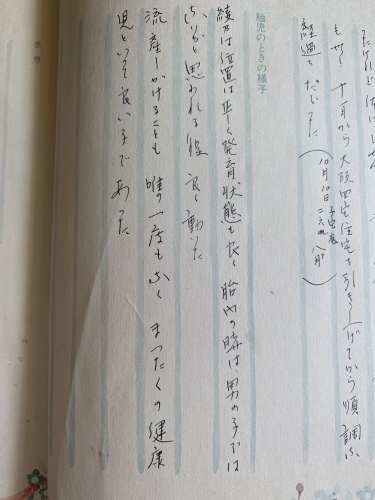 もせず 十一月から大阪の官舎住宅を引き上げてから順調な
経過をたどった
(10月10日 子宮巻 二六〇 八ヶ月)
胎児のときの様子
綾乃は位置は正しく発育状態も良く 胎内の時は男の子では
ないかと思われる程 良く動いた
流産しかけることも 唯の一度も無く まったくの健康
児といって良い子であった
感想